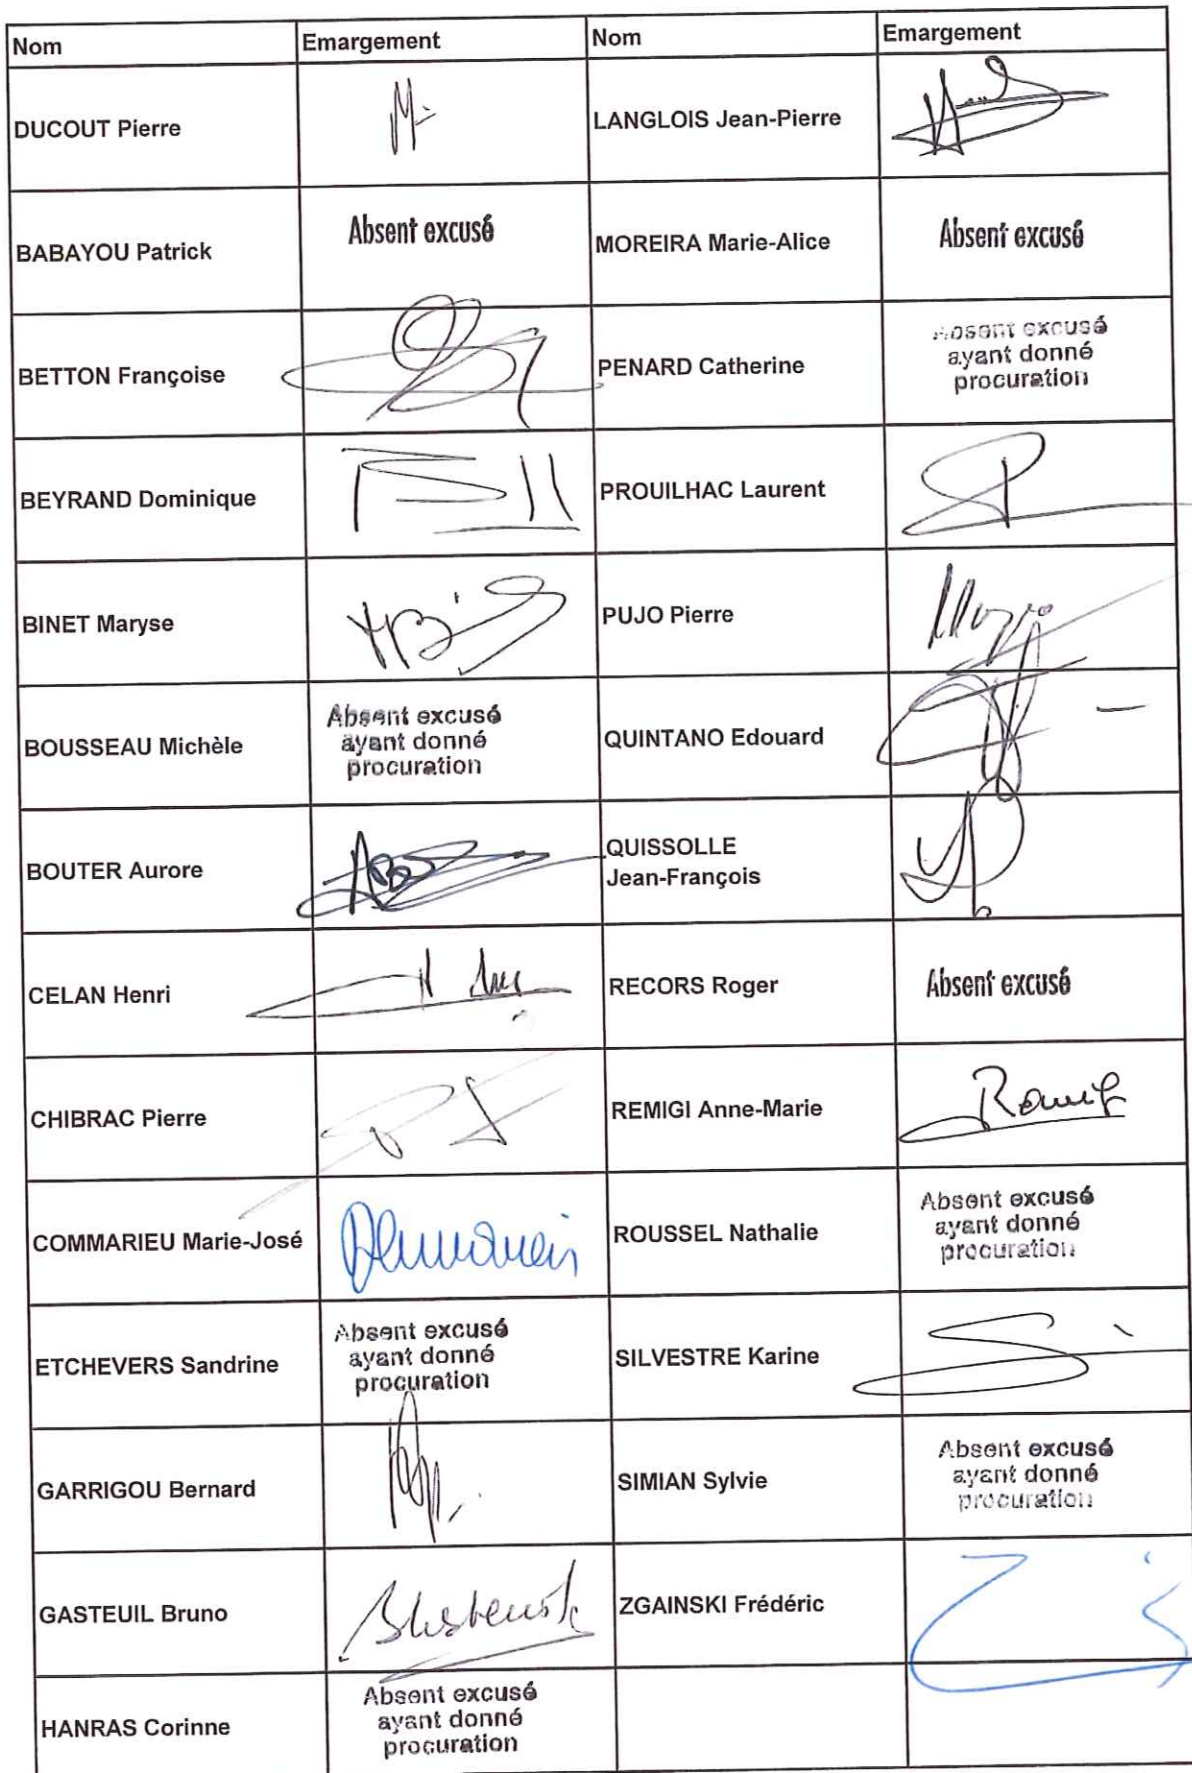 Nom Emargement Nom Emargement
DUCOUT Pierre LANGLOIS Jean-Pierre
BABAYOU Patrick Absent excusé MOREIRA Marie-Alice Absent excusé
BETTON Françoise PENARD Catherine Absent excusé
ayant donné
procuration
BEYRAND Dominique PROUILHAC Laurent
BINET Maryse PUJO Pierre
BOUSSEAU Michèle Absent excusé
ayant donné
procuration
QUINTANO Edouard
BOUTER Aurore QUISSOLLE
Jean-François
CELAN Henri RECORS Roger Absent excusé
CHIBRAC Pierre REMIGI Anne-Marie
COMMARIEU Marie-José ROUSSEL Nathalie Absent excusé
ayant donné
procuration
ETCHEVERS Sandrine Absent excusé
ayant donné
procuration
SILVESTRE Karine
GARRIGOU Bernard SIMIAN Sylvie Absent excusé
ayant donné
procuration
GASTEUIL Bruno ZGAINSKI Frédéric
HANRAS Corinne Absent excusé
ayant donné
procuration